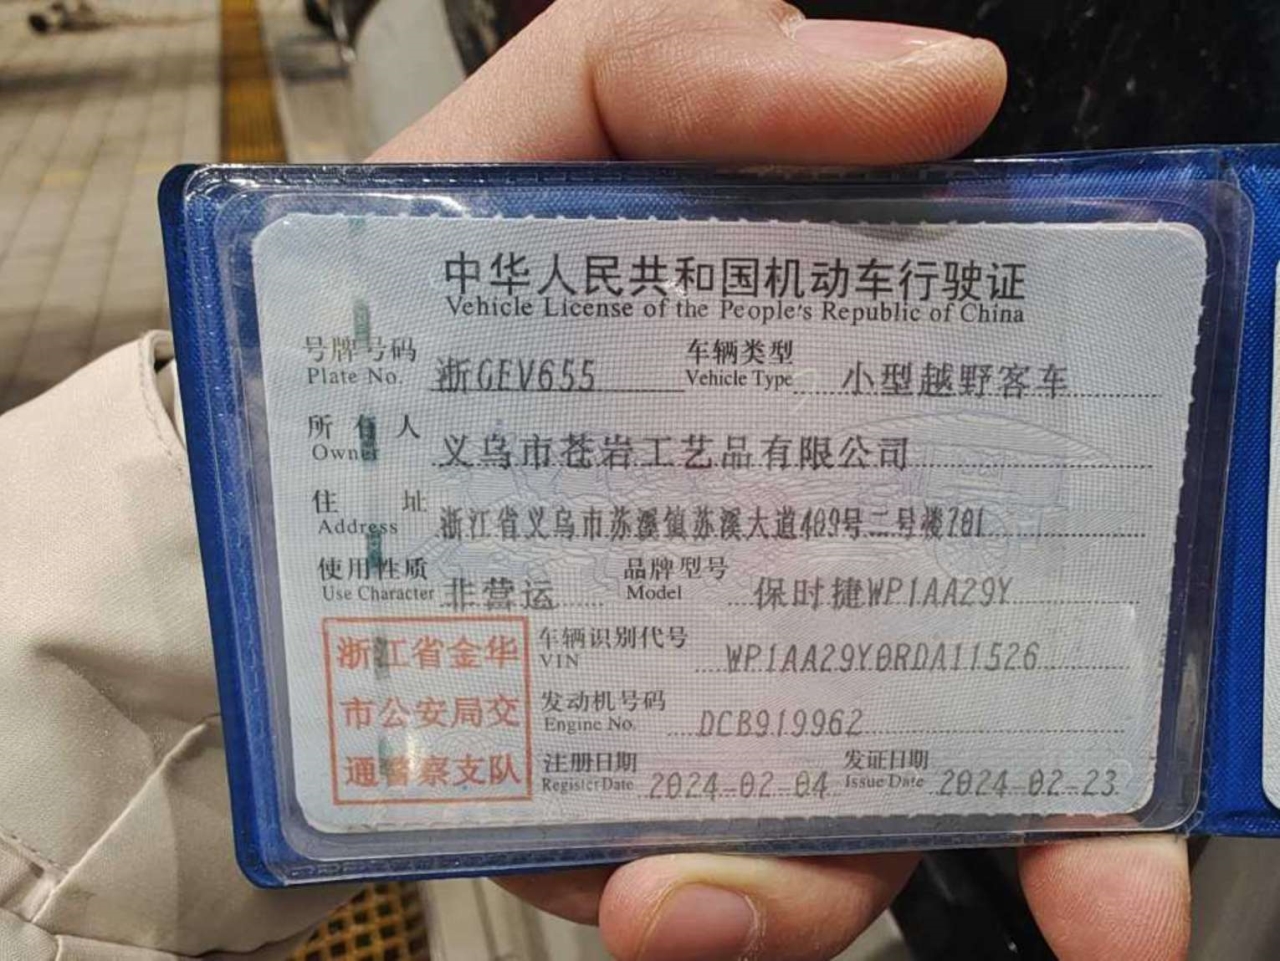 中华人民共和国机动车行驶证
Vehicle License of the People's Republic of China
号牌号码 浙GEV655 车辆类型 小型越野客车
Plate No. Vehicle Type
所有人 义乌市苍岩工艺品有限公司
Owner
住址 浙江省义乌市苏溪镇苏溪大道409号二号楼701
Address
使用性质 非营运 品牌型号 保时捷WP1AA29Y
Use Character Model
浙江省金华
市公安局交
通警察支队
车辆识别代号 WP1AA29Y0RDA11526
VIN
发动机号码 DCB919962
Engine No.
注册日期 2024-02-04 发证日期 2024-02-23
Register Date Issue Date